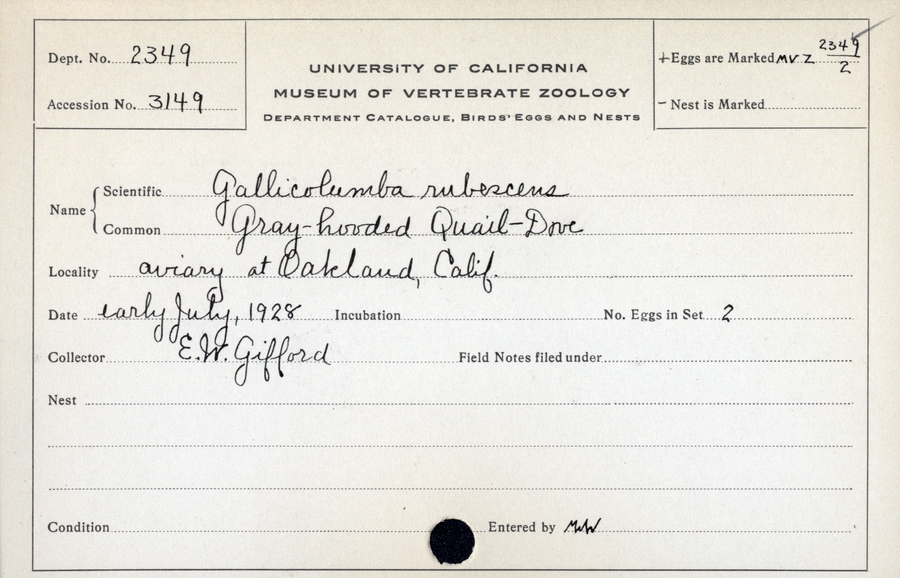 Dept. No. 2349
Accession No. 3149
UNIVERSITY OF CALIFORNIA
MUSEUM OF VERTEBRATE ZOOLOGY
DEPARTMENT CATALOGUE, BIRDS' EGGS AND NESTS
+Eggs are Marked MVZ 2349/2
- Nest is Marked
Name
Scientific Gallicolumba rubescens
Common Gray-hooded Quail-Dove
Locality aviary at Oakland, Calif.
Date early July, 1928 Incubation No. Eggs in Set 2
Collector E.W. Gifford Field Notes filed under
Nest
Condition Entered by